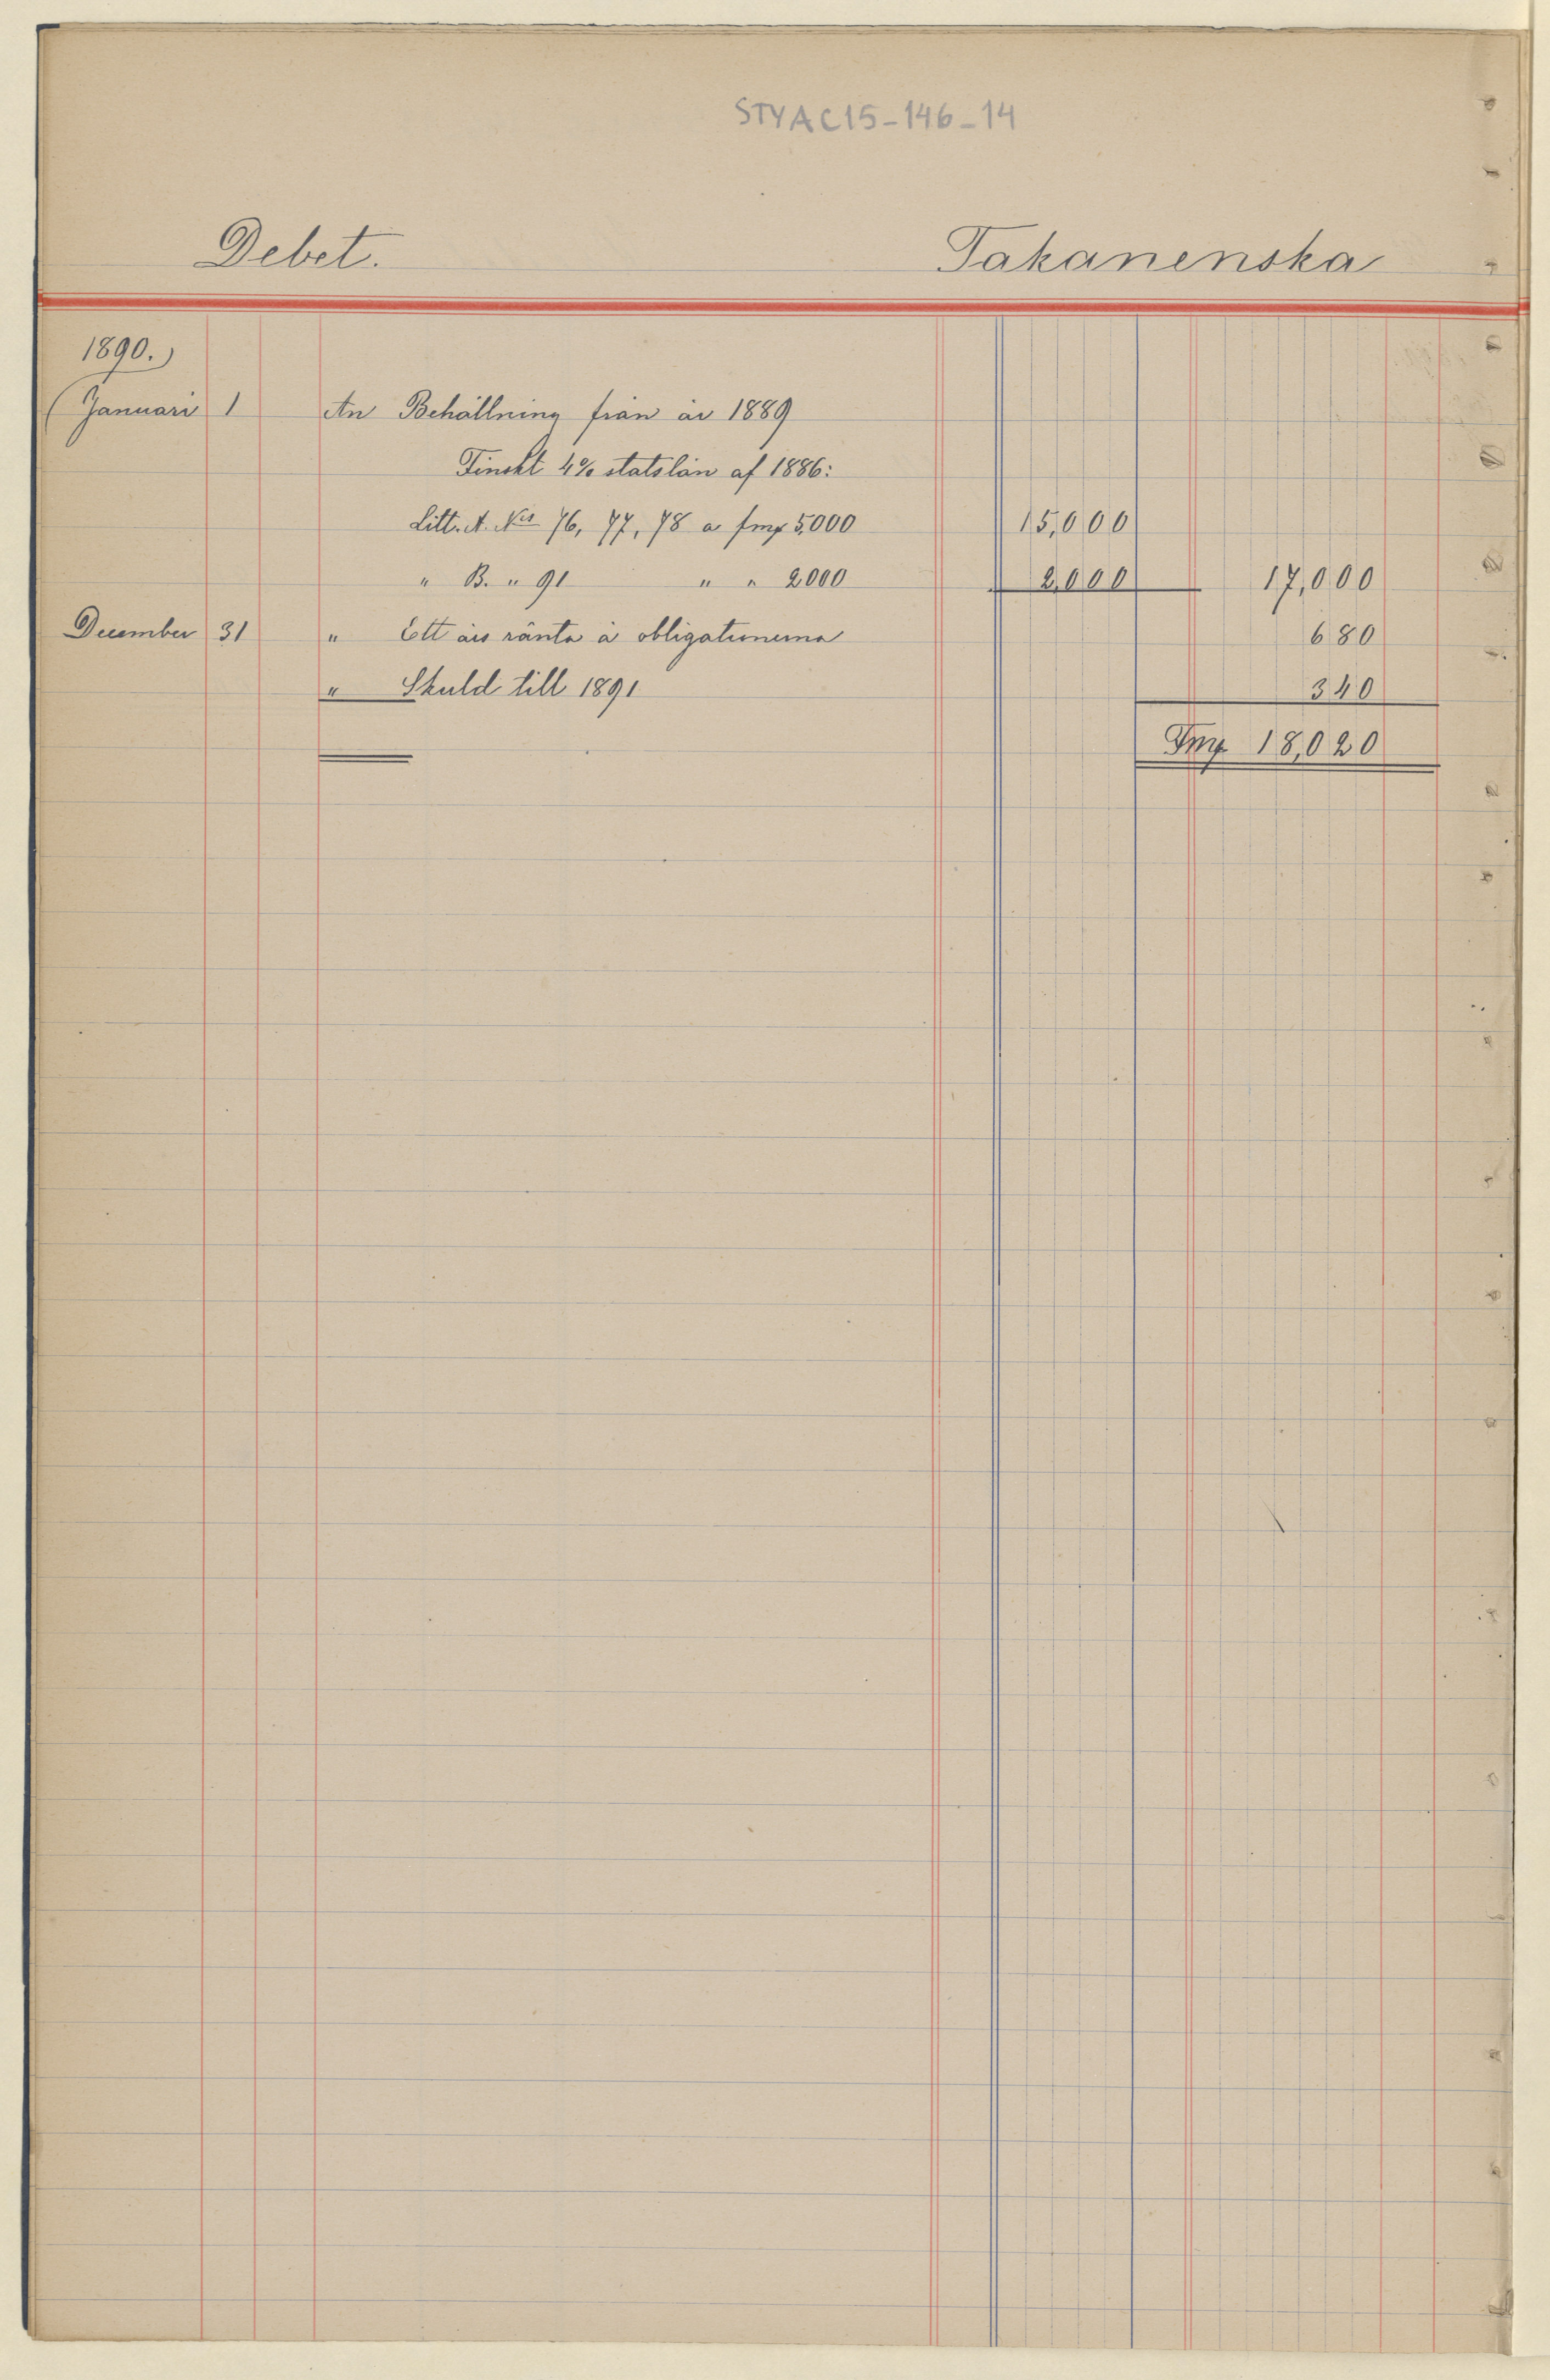 STYAC15-146-14
Debet. Takanenska
1890.
Januari 1 An Behållning från år 1889
Finskt 4% statslån af 1886:
Litt. A. Nis 76, 77, 78 a fmp 5,000 15,000
" B. " 91 " " 2000 2,000 17,000
December 31 " Ett års ränta å obligationerna 680
" Skuld till 1891 340
Fmp. 18,020